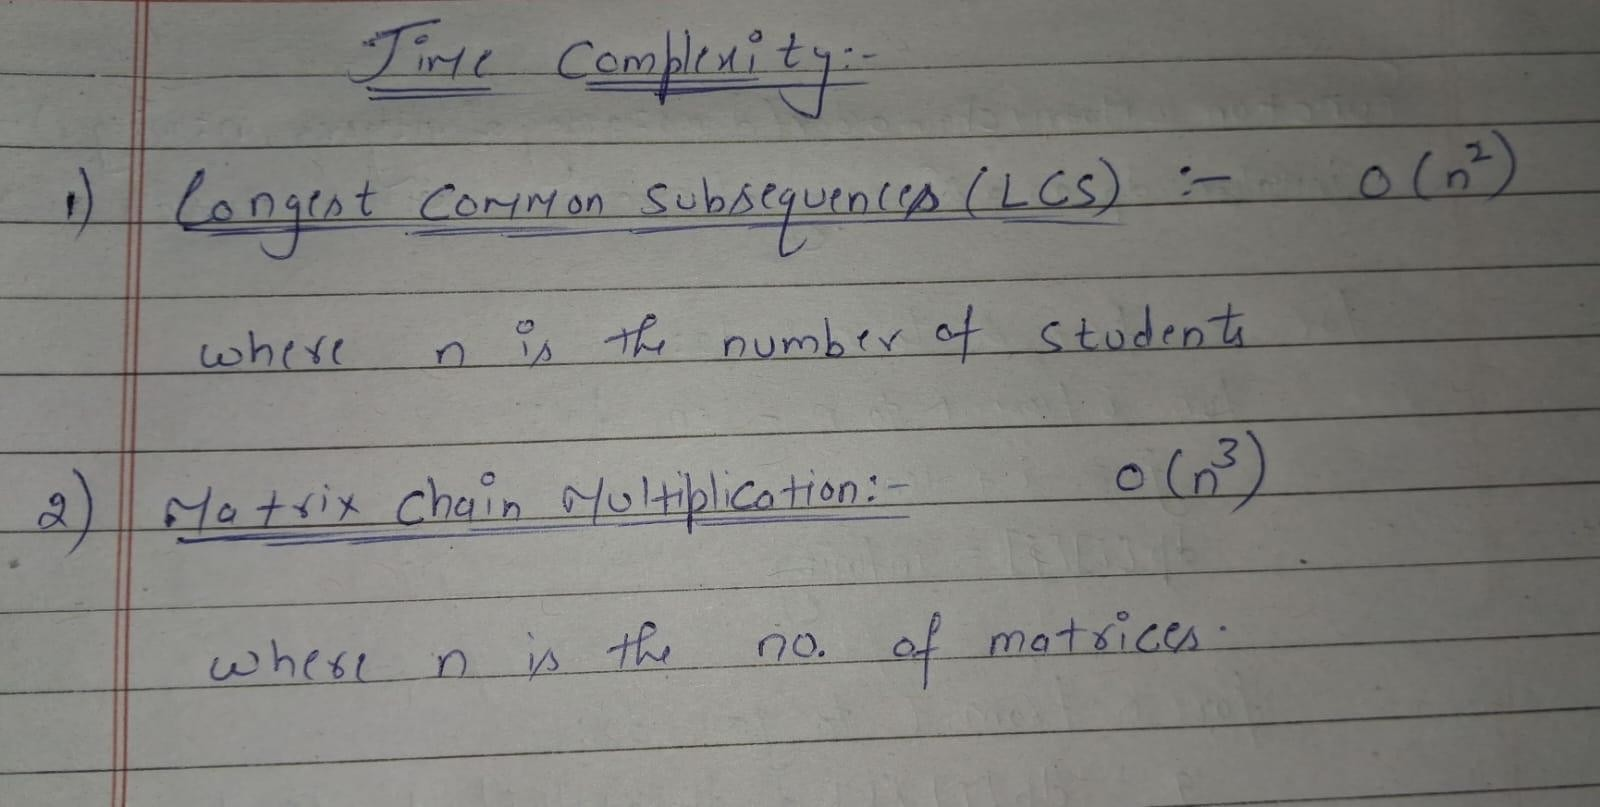 Time Complexity:-
1) Longest Common Subsequences (LCS) :- O(n²)
where n is the number of students
2) Matrix Chain Multiplication:- O(n³)
where n is the no. of matrices.